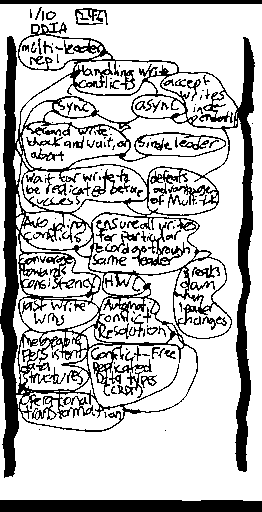 1/10
DDIA
multi-leader
repl
Handling write
conflicts
accept
writes
inde
pendently
Sync
async
Second write
block and wait, or
abort
Single leader
wait for write to
be replicated before
success
defeats
advantages
of Multi-L
Avoiding
Conflicts
ensure all writes
for particular
record go through
same leader
converge
towards
consistency
HWC
breaks
down
when
leader
changes
last write
wins
Automatic
Conflict
Resolution
Mergeable
Persistent
data
structures
Conflict-Free
Replicated
Data Types
(CRDT)
Operational
transformation